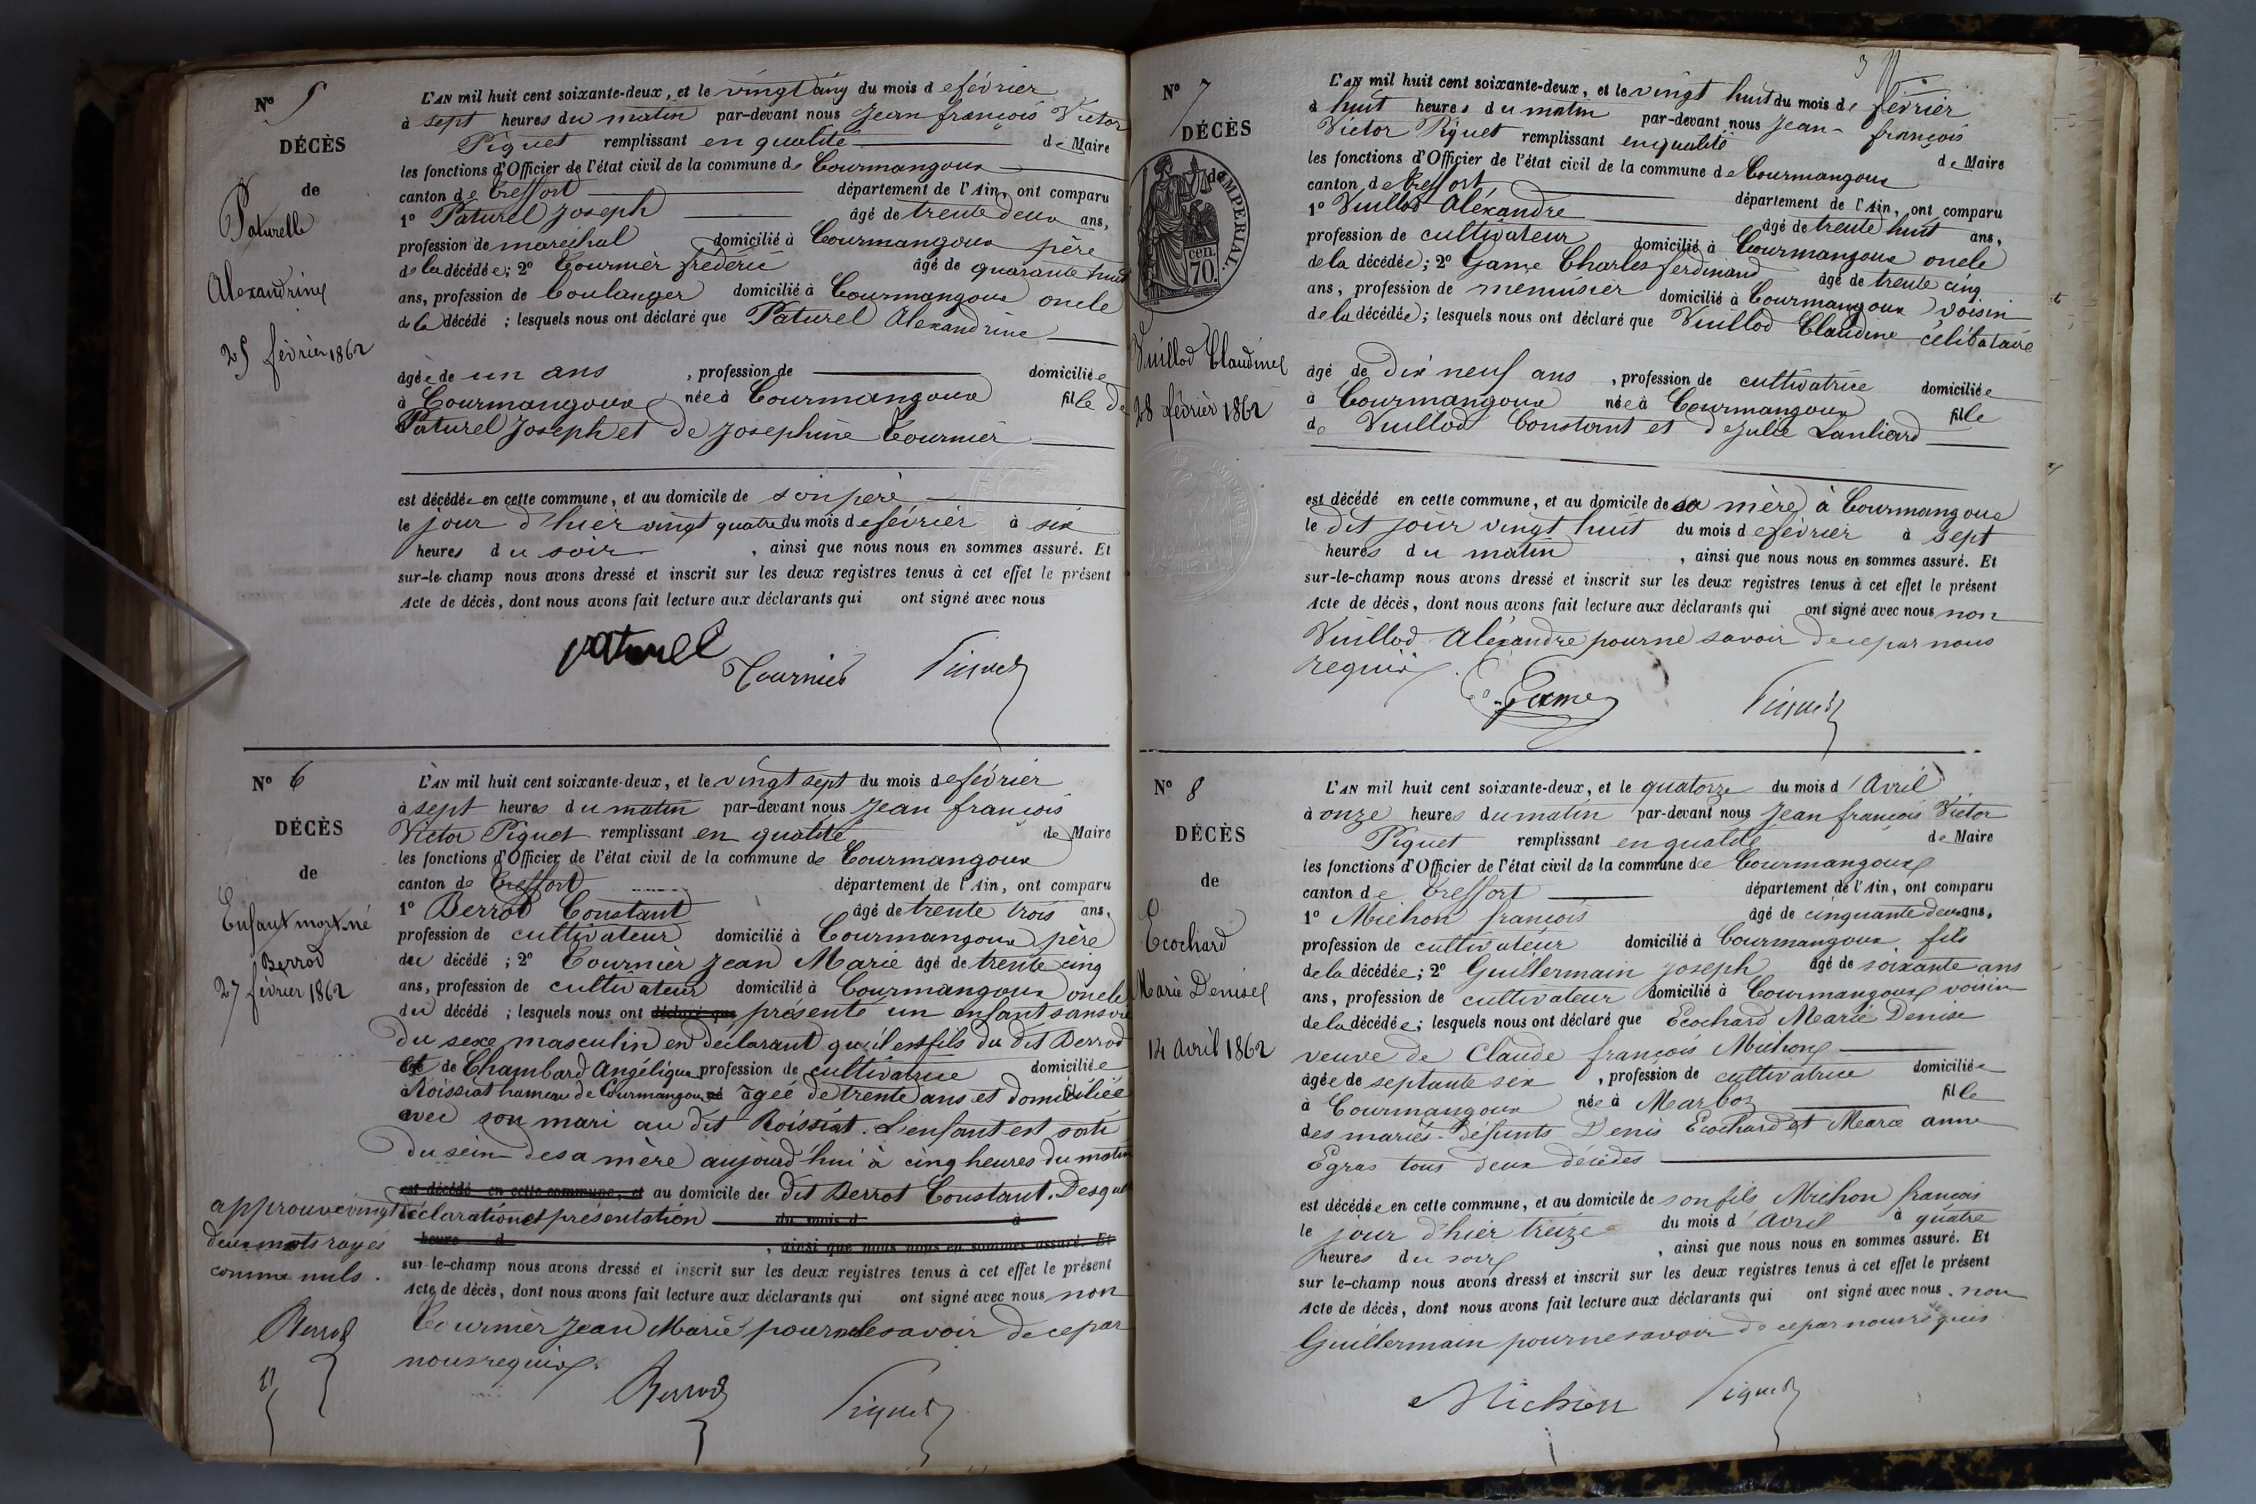 N° 5
DÉCÈS
de
Paturelle
Alexandrine
25 février 1862
L'AN mil huit cent soixante-deux, et le vingt cinq du mois de février
à sept heures du matin par-devant nous Jean françois Victor
Piquet remplissant en qualité de Maire
les fonctions d'Officier de l'état civil de la commune de Courmangoux
canton de Treffort département de l'Ain, ont comparu
1° Paturel Joseph âgé de trente deux ans,
profession de maréchal domicilié à Courmangoux père
de la décédée; 2° Tournier frédéric âgé de quarante huit
ans, profession de boulanger domicilié à Courmangoux oncle
de la décédé ; lesquels nous ont déclaré que Paturel Alexandrine
âgée de un ans , profession de domiciliée
à Courmangoux née à Courmangoux fille de
Paturel Joseph et de Josephine Tournier
est décédée en cette commune, et au domicile de son père
le jour d'hier vingt quatre du mois de février à six
heures du soir , ainsi que nous nous en sommes assuré. Et
sur-le-champ nous avons dressé et inscrit sur les deux registres tenus à cet effet le présent
Acte de décès, dont nous avons fait lecture aux déclarants qui ont signé avec nous
paturel Tournier Piquet
N° 6
DÉCÈS
de
Enfant mort né
Berrod
27 février 1862
L'AN mil huit cent soixante-deux, et le vingt sept du mois de février
à sept heures du matin par-devant nous Jean françois
Victor Piquet remplissant en qualité de Maire
les fonctions d'Officier de l'état civil de la commune de Courmangoux
canton de Treffort département de l'Ain, ont comparu
1° Berrod Constant âgé de trente trois ans,
profession de cultivateur domicilié à Courmangoux père
du décédé ; 2° Tournier Jean Marie âgé de trente cinq
ans, profession de cultivateur domicilié à Courmangoux oncle
du décédé ; lesquels nous ont déclaré que présenté un enfant sans vie
du sexe masculin en declarant qu'il est fils du dit Berrod
et de Chambard Angélique profession de cultivatrice domiciliée
à Roissiat hameau de Courmangoux agée de trente ans et domiciliée
avec son mari au dit Roissiat. L'enfant est sorti
du sein de sa mère aujourd'hui à cinq heures du matin
est décédé en cette commune, et au domicile de dit Berrot Constant. Desquels
déclaration et présentation du mois d à
heure d , ainsi que nous nous en sommes assuré. Et
sur-le-champ nous avons dressé et inscrit sur les deux registres tenus à cet effet le présent
Acte de décès, dont nous avons fait lecture aux déclarants qui ont signé avec nous non
Tournier Jean Marie pour ne le savoir de ce par
nous requis.
approuvé vingt
deux mots rayés
comme nuls.
Berrod
Berrod Piquet
N° 7
DÉCÈS
de
IMPERIAL.
cen.
70.
Vuillod Claudine
28 février 1862
3
L'AN mil huit cent soixante-deux, et le vingt huit du mois de février
à huit heures du matin par-devant nous Jean-françois
Victor Piquet remplissant en qualité de Maire
les fonctions d'Officier de l'état civil de la commune de Courmangoux
canton de Treffort département de l'Ain, ont comparu
1° Vuillod Alexandre âgé de trente huit ans,
profession de cultivateur domicilié à Courmangoux oncle
de la décédée; 2° Game Charles ferdinand âgé de trente cinq
ans, profession de menusier domicilié à Courmangoux voisin
de la décédée; lesquels nous ont déclaré que Vuillod Claudine célibataire
âgé de dix neuf ans , profession de cultivatrice domiciliée
à Courmangoux née à Courmangoux fille
de Vuillod Constant et de Julie Lanliard
est décédé en cette commune, et au domicile de sa mère à Courmangoux
le dit jour vingt huit du mois de février à sept
heures du matin , ainsi que nous nous en sommes assuré. Et
sur-le-champ nous avons dressé et inscrit sur les deux registres tenus à cet effet le présent
Acte de décès, dont nous avons fait lecture aux déclarants qui ont signé avec nous non
Vuillod Alexandre pour ne savoir de ce par nous
requis.
Game Piquet
N° 8
DÉCÈS
de
Ecochard
Marie Denise
14 avril 1862
L'AN mil huit cent soixante-deux, et le quatorze du mois d'Avril
à onze heures du matin par-devant nous Jean françois Victor
Piquet remplissant en qualité de Maire
les fonctions d'Officier de l'état civil de la commune de Courmangoux
canton de Treffort département de l'Ain, ont comparu
1° Michon françois âgé de cinquante deux ans,
profession de cultivateur domicilié à Courmangoux fils
de la décédée; 2° Guillermain Joseph âgé de soixante ans
ans, profession de cultivateur domicilié à Courmangoux voisin
de la décédée; lesquels nous ont déclaré que Ecochard Marie Denise
veuve de Claude françois Michon
âgée de septante six , profession de cultivatrice domiciliée
à Courmangoux née à Marboz fille
des mariés défunts Denis Ecochard et Marie anne
Egras tous deux décédés
est décédée en cette commune, et au domicile de son fils Michon françois
le jour d'hier treize du mois d'Avril à quatre
heures du soir , ainsi que nous nous en sommes assuré. Et
sur le-champ nous avons dressé et inscrit sur les deux registres tenus à cet effet le présent
Acte de décès, dont nous avons fait lecture aux déclarants qui ont signé avec nous. non
Guillermain pour ne savoir de ce par nous réquis
Michon Piquet